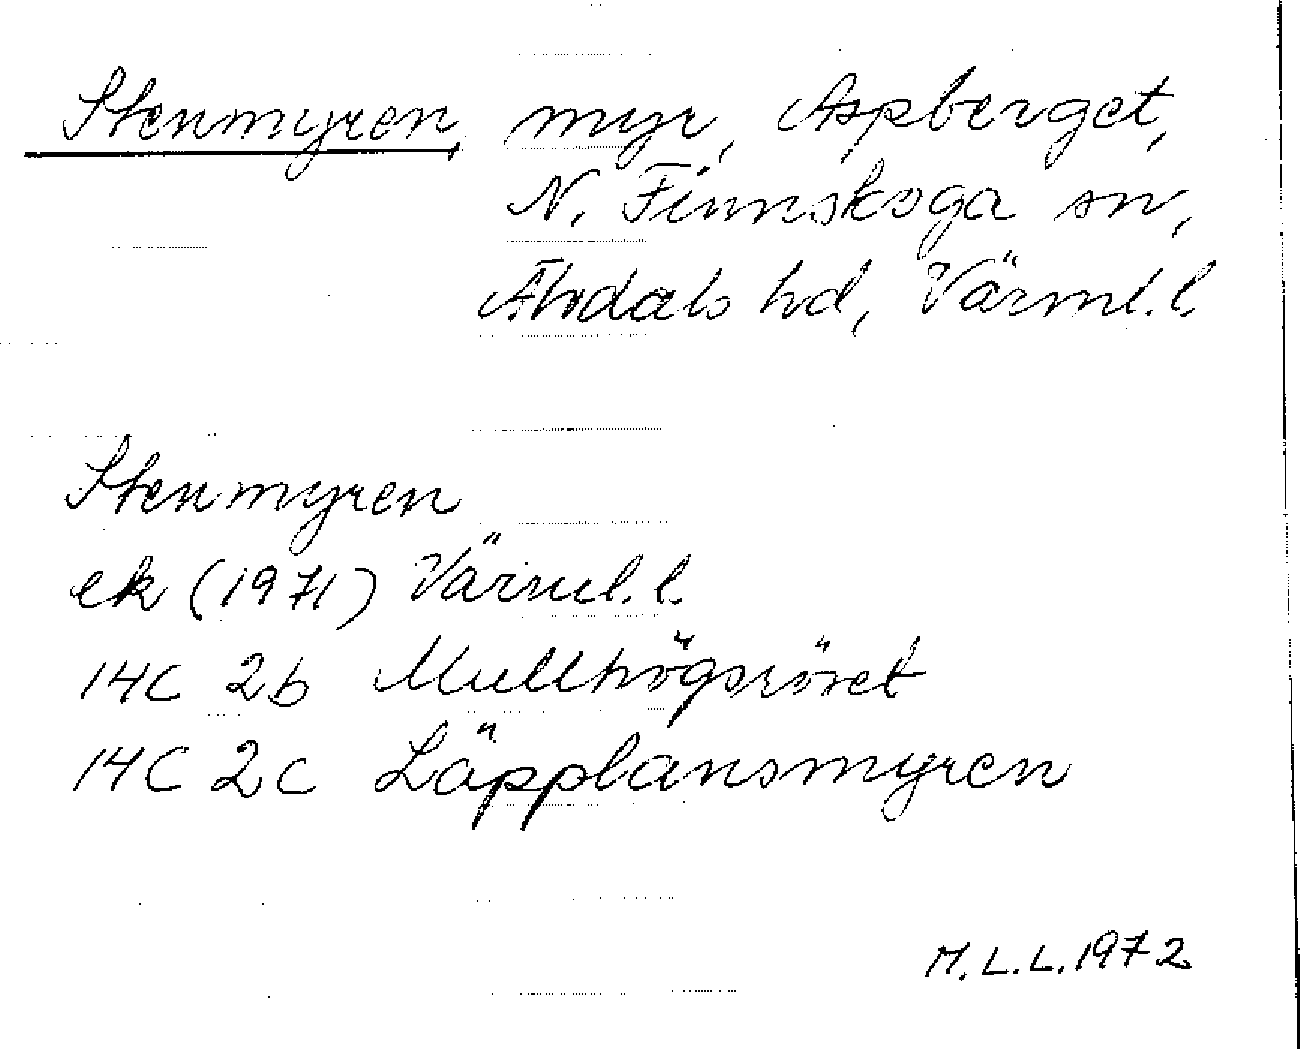 Stenmyren, myr, Aspberget,
N. Finnskoga sn,
Älvdals hd, Värml. l.
Stenmyren
ek (1971) Värml. l.
14C 2b Mullhögsröret
14C 2c Läpplansmyren
M.L.L. 1972